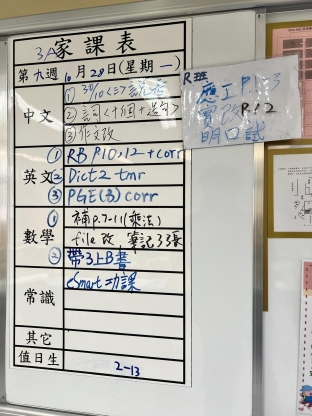 3A家課表
第九週10月28日(星期一)
中文
① 30/10<三>說話
② 詞<十個+造句>
③ 作文改
英文
① RB P10,12 + corr
② Dict 2 tmr
③ PGE(B) corr
數學
① 補p.7-11(乘法)
file改,筆記33張
② 帶3上B書
常識
eSmart功課
其它
值日生
2-13
R班
應工P1-3
改R12
明口試